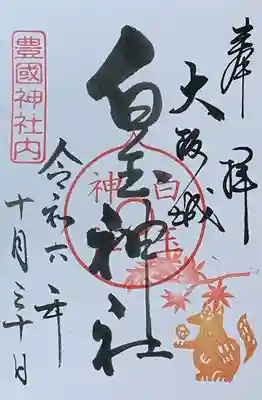 奉拝
大阪城
白玉神社
豊國神社内
令和六年
十月三十日
白玉
神社